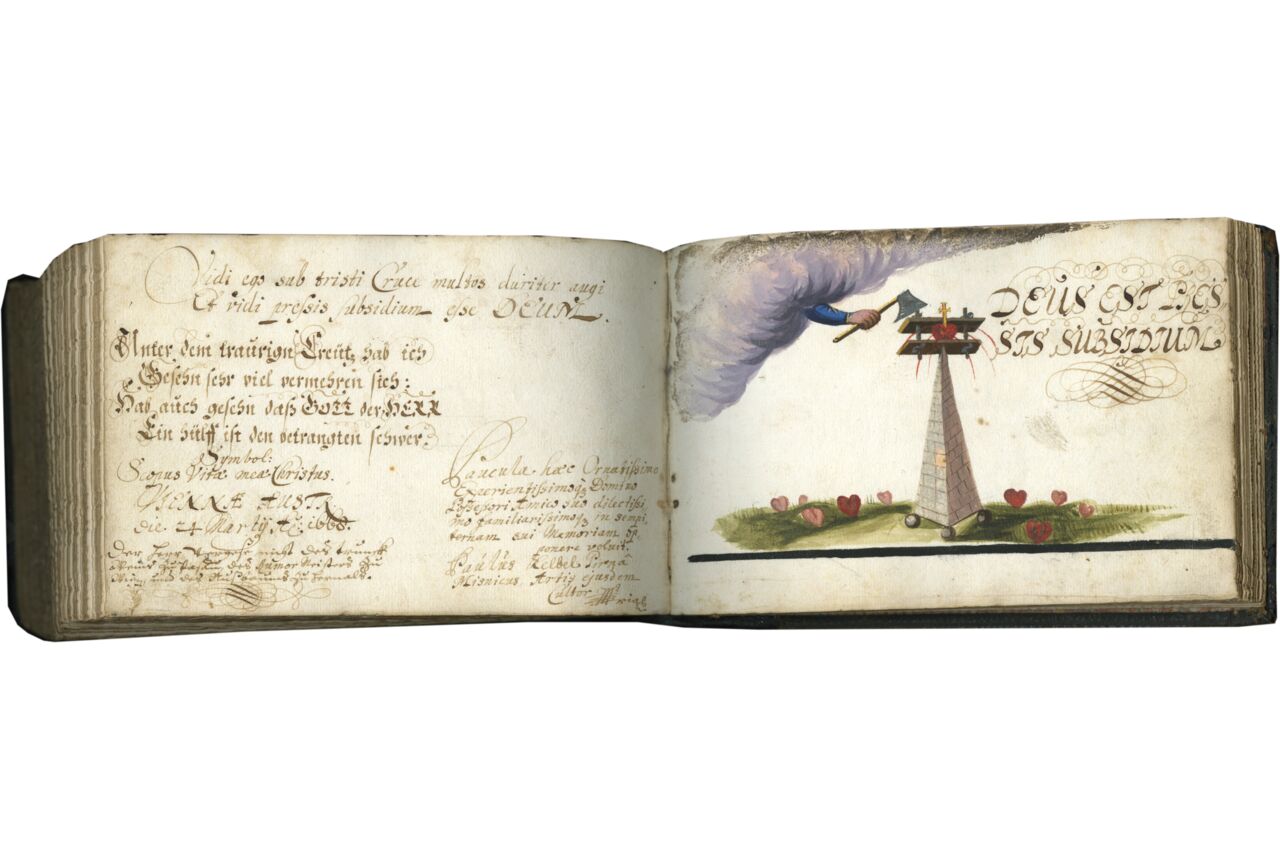 Vidi ego sub tristi Cruce multos duriter augi
Et vidi pressis subsidium esse DEUM.
Unter dem traurign Creutz hab ich
Gesehn sehr viel vermehren sich:
Hab auch gesehn daß GOTT der HERR
Ein hülff ist den betrangten schwer.
Symbol:
Scopus Vitæ meæ Christus.
VIENNÆ AUSTR
die 24 Martij Aº
Der Herr nicht des
zu des zu
des zu
Paucula hæc Ornatissimo
Experientissimoq Domino
Possessori Amico suo dilectissi
mo familiarissimoq in sempi
ternam sui Memoriam
ponere voluit.
Paulus Keldel Pirnâ
Misnicus, Artis ejusdem
Cultor
DEUS EST PRES
SIS SUBSIDIUM